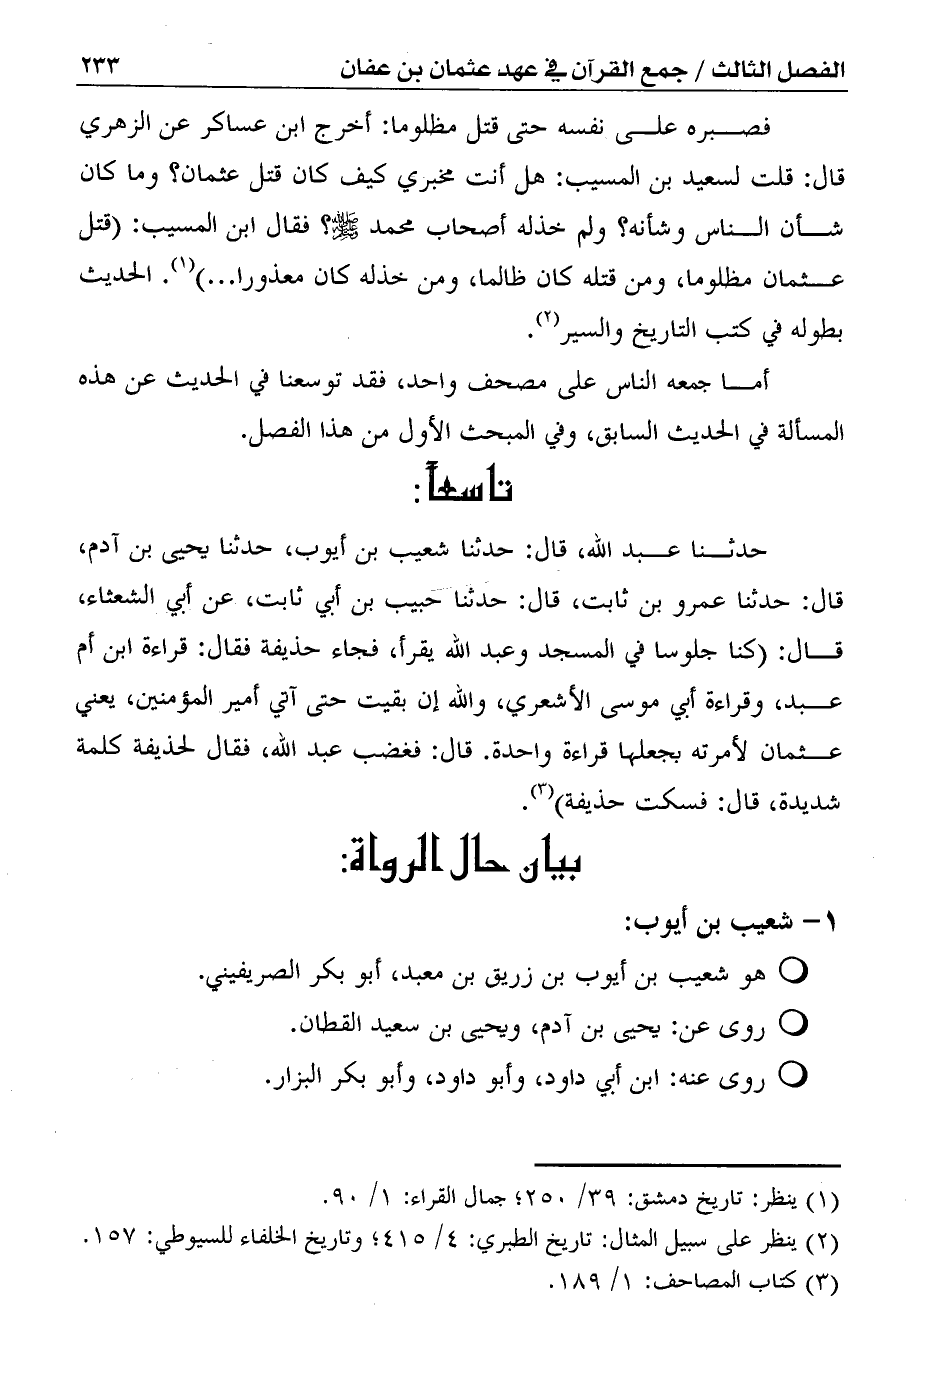 الفصل الثالث / جمع القرآن في عهد عثمان بن عفان ٢٣٣
فصبره على نفسه حتى قتل مظلوما: أخرج ابن عساكر عن الزهري
قال: قلت لسعيد بن المسيب: هل أنت مخبري كيف كان قتل عثمان؟ وما كان
شأن الناس وشأنه؟ ولم خذله أصحاب محمد ﷺ؟ فقال ابن المسيب: (قتل
عثمان مظلوما، ومن قتله كان ظالما، ومن خذله كان معذورا...)(١). الحديث
بطوله في كتب التاريخ والسير(٢).
أما جمعه الناس على مصحف واحد، فقد توسعنا في الحديث عن هذه
المسألة في الحديث السابق، وفي المبحث الأول من هذا الفصل.
تاسعاً:
حدثنا عبد الله، قال: حدثنا شعيب بن أيوب، حدثنا يحيى بن آدم،
قال: حدثنا عمرو بن ثابت، قال: حدثنا حبيب بن أبي ثابت، عن أبي الشعثاء،
قال: (كنا جلوسا في المسجد وعبد الله يقرأ، فجاء حذيفة فقال: قراءة ابن أم
عبد، وقراءة أبي موسى الأشعري، والله إن بقيت حتى آتي أمير المؤمنين، يعني
عثمان لأمرته بجعلها قراءة واحدة. قال: فغضب عبد الله، فقال لحذيفة كلمة
شديدة، قال: فسكت حذيفة)(٣).
بيان حال الرواة:
١- شعيب بن أيوب:
○ هو شعيب بن أيوب بن زريق بن معبد، أبو بكر الصريفيني.
○ روى عن: يحيى بن آدم، ويحيى بن سعيد القطان.
○ روى عنه: ابن أبي داود، وأبو داود، وأبو بكر البزار.
(١) ينظر: تاريخ دمشق: ٣٩/ ٢٥٠؛ جمال القراء: ١/ ٩٠.
(٢) ينظر على سبيل المثال: تاريخ الطبري: ٤/ ٤١٥؛ وتاريخ الخلفاء للسيوطي: ١٥٧.
(٣) كتاب المصاحف: ١/ ١٨٩.